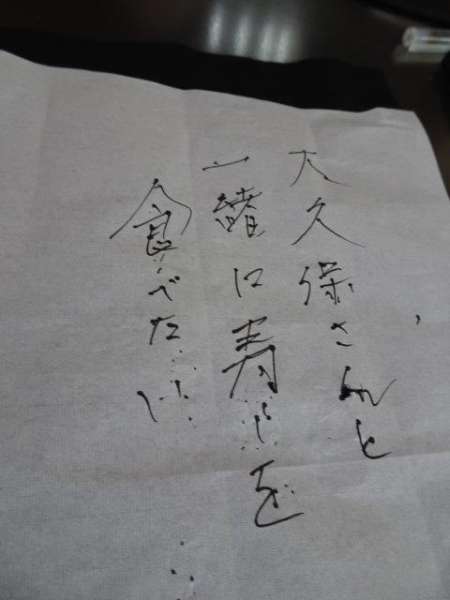 大久保さんと
一緒に寿しを
食べたい